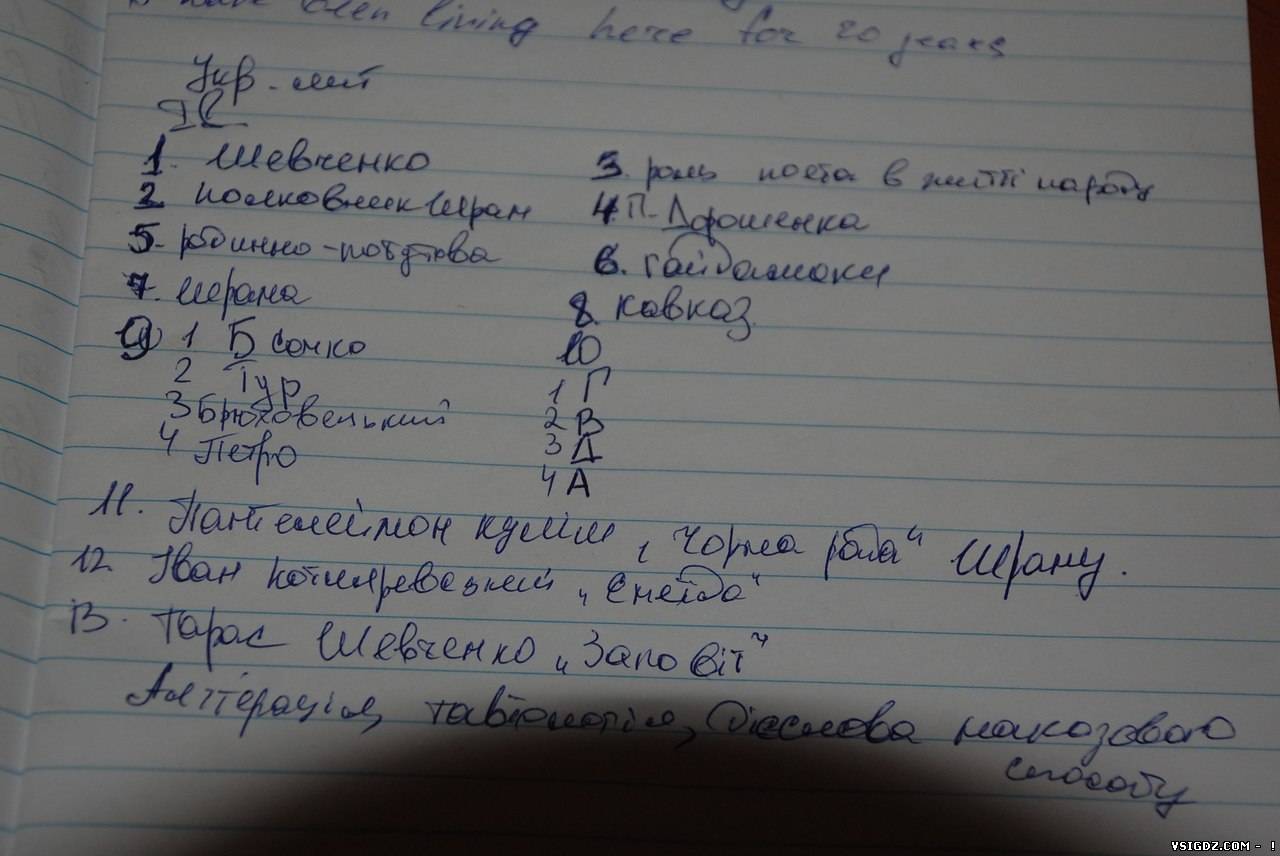 have been living here for 20 years
Укр. літ
ІІ
1. Шевченко 3. роль поета в житті народу
2 полковник Шрам 4. П. Дорошенка
5. родинно-побутова 6. Гайдамаки
7. Шрама 8. Кавказ
9 1 Б сомко 10
2 Тур 1 Г
3 Брюховецький 2 В
4 Петро 3 Д
4 А
11. Пантелеймон куліш, "Чорна рада" Шраму.
12. Іван котляревський "Енеїда"
13. Тарас Шевченко "Заповіт"
Алітерація, тавтологія, дієслова наказового
способу
VSIGDZ.COM - !